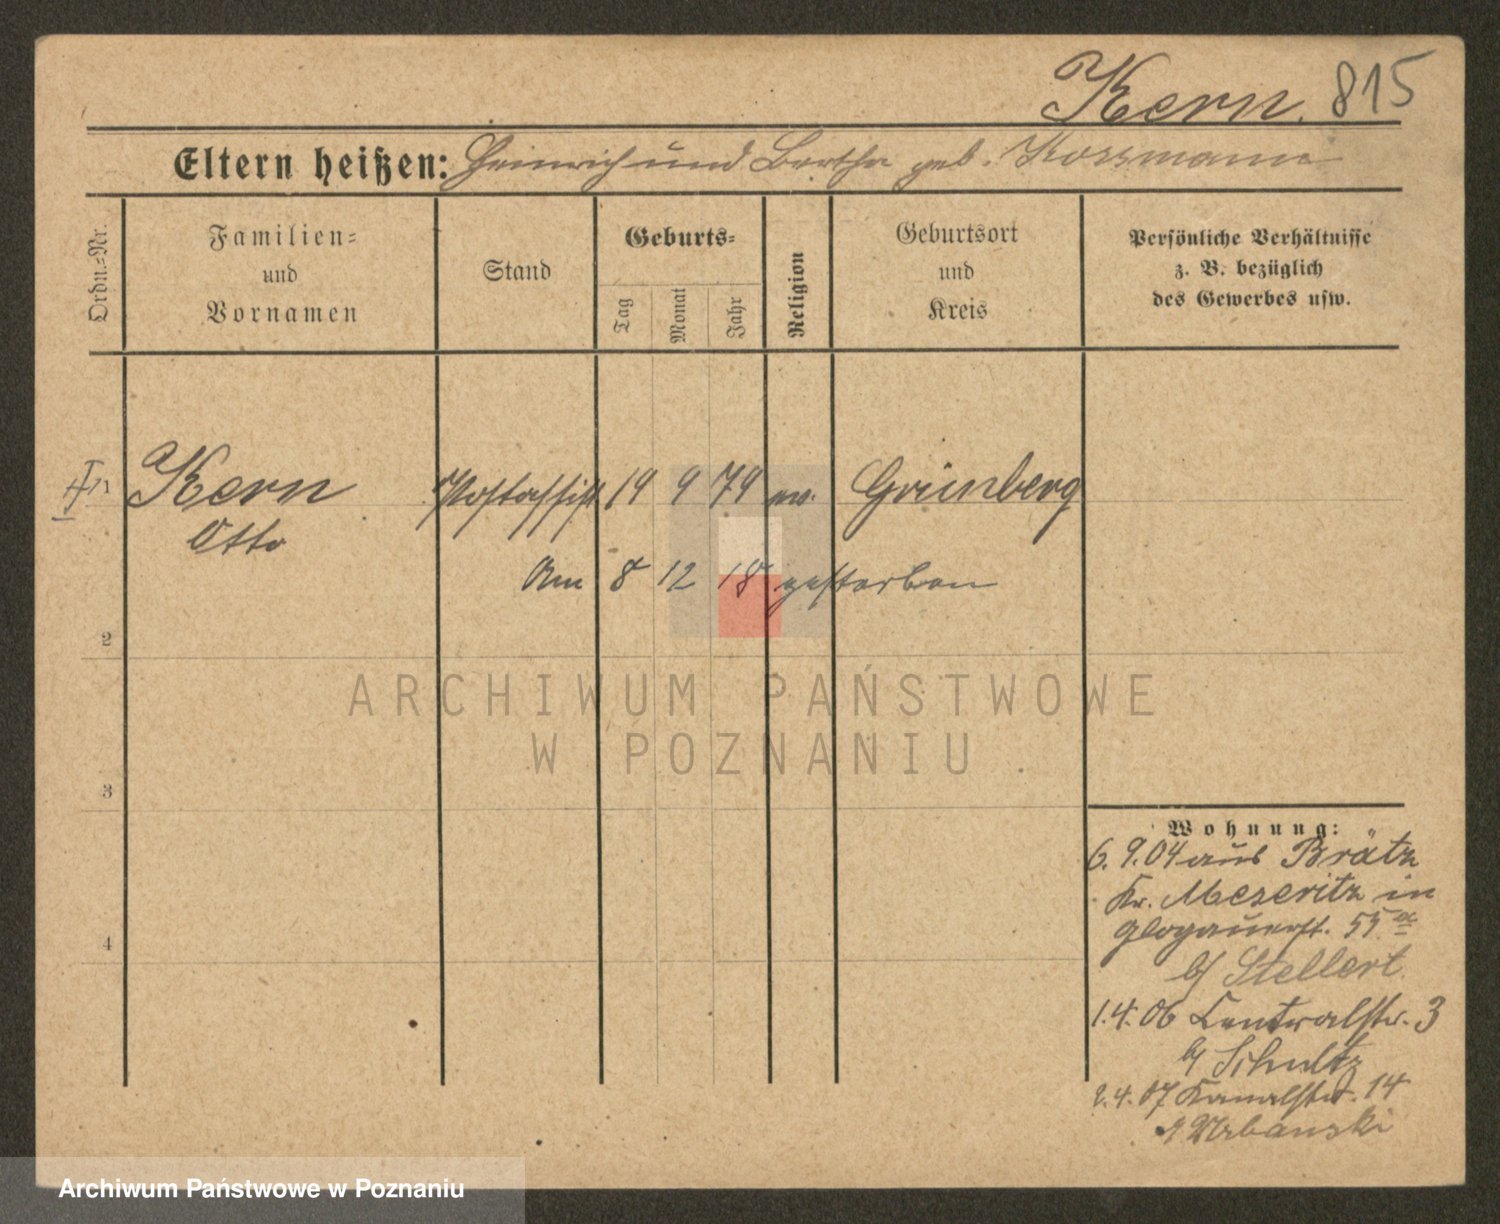 Kern. 815
Eltern heißen: Heinrich und Bertha geb. Kossmann
Ordn.-Nr.
Familien-
und
Vornamen
Stand
Geburts-
Tag
Monat
Jahr
Religion
Geburtsort
und
Kreis
Persönliche Verhältnisse
z. B. bezüglich
des Gewerbes usw.
1 Kern Postassist 19 9 79 ev. Grünberg
Otto
Am 8 12 18 gestorben
2
3
4
ARCHIWUM PAŃSTWOWE
W POZNANIU
Wohnung:
6. 9. 04 aus Brätz
Kr. Meseritz in
Glogauerst. 55a
b/ Stellert
1. 4. 06 Centralstr. 3
b/ Schultz
2. 4. 07 Kanalstr. 14
Urbanski
Archiwum Państwowe w Poznaniu